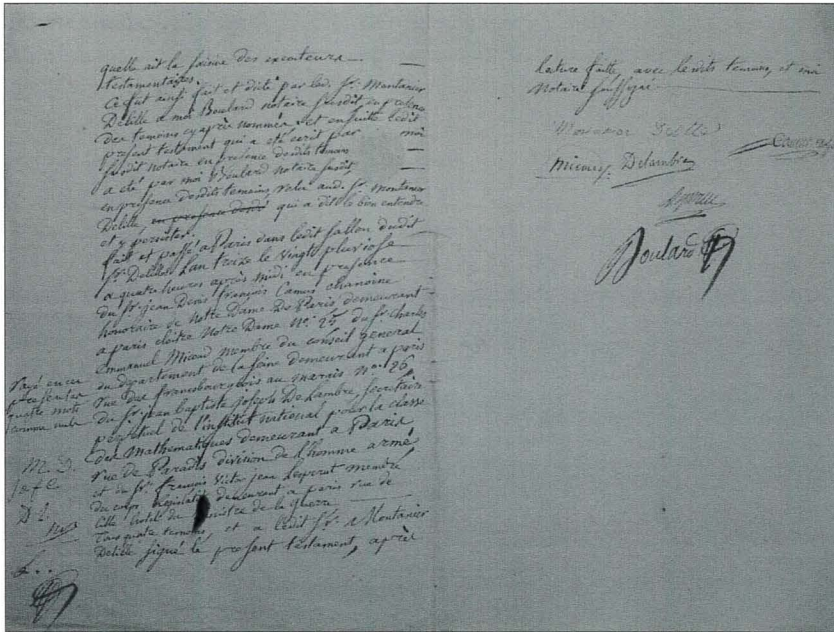 quelle ait la saisine des executeurs
testamentaires.
Ce fut ainsi fait et dicté par led. Sr. Montanier
Delille a moi Boulard notaire susdit en presence
des temoins cy après nommés et ensuite ledit
present testament qui a été ecrit par moi
susdit notaire en presence desdits temoins
a été par moi Boulard notaire susdit,
en presence desdits temoins relu aud. Sr. Montanier
Delille en presence desd. qui a dit le bien entendre
et y persister.
fait et passé a Paris dans ledit sallon dudit
Sr. Delille l'an treize le vingt pluviose
a quatre heures après midi en presence
du Sr. jean Denis françois Camus chanoine
honoraire de Notre Dame De Paris demeurant
a paris cloitre Notre Dame No. 25, du Sr. Charles
Emmanuel Micoud membre du conseil general
du departement de la seine demeurant a paris
rue des francsbourgeois au marais No. 26,
du Sr. jean baptiste joseph Delambre secretaire
perpetuel de l'institut national pour la classe
des Mathematiques demeurant a Paris
rue de Paradis division de l'homme armé
et du Sr. françois Victor jean Lesperut membre
du corps legislatif demeurant a paris rue de
Lille hotel du ministre de la guerre
tous quatre temoins et a ledit Sr. Montanier
Delille signé le present testament, après
Rayé en ces
presentes
quatre mots
comme nuls
M. D.
D L
L..
lecture faitte, avec lesdits temoins, et moi
Notaire soussigné
Montanier Delille
Camus
Micoud. Delambre
Lesperut
Boulard